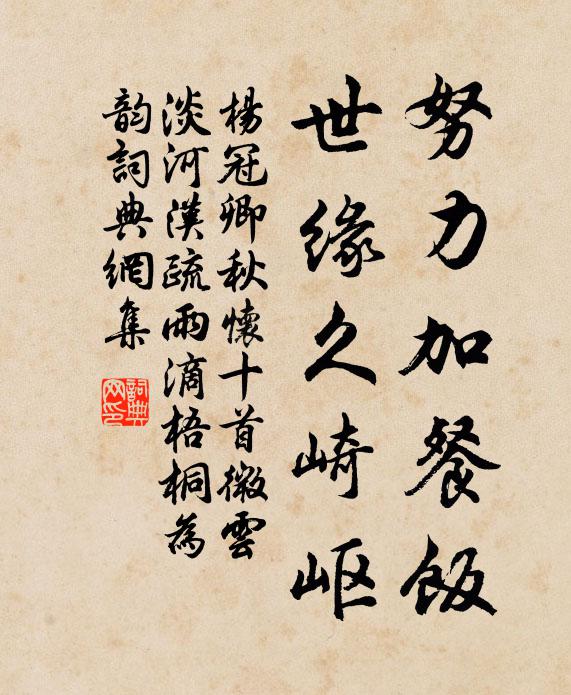 努力加餐飯
世緣久崎嶇
楊冠卿秋懷十首微雲
淡河漢疏雨滴梧桐為
韵詞典網集
詞典
网印